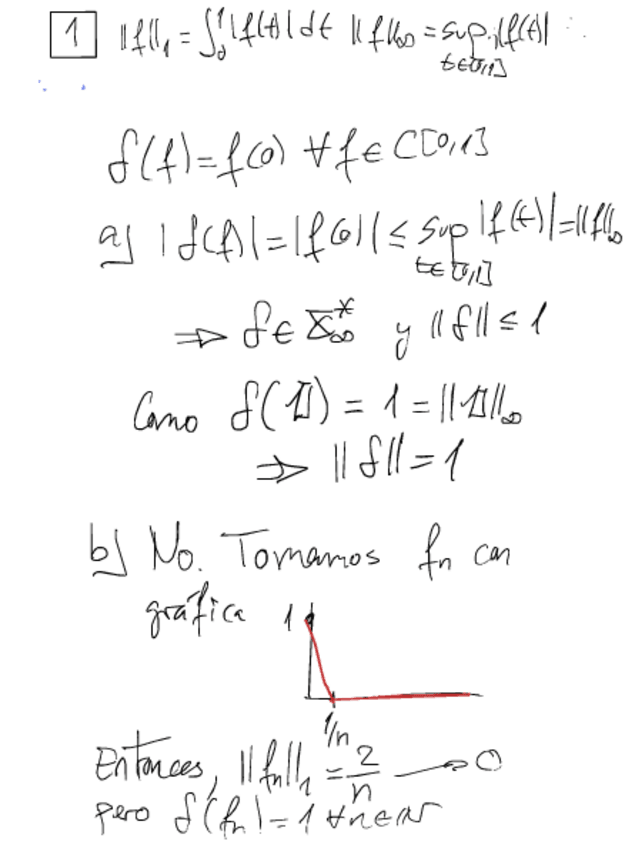 1 ||f||₁ = ∫₀¹ |f(t)| dt ||f||∞ = sup_{t∈[0,1]} |f(t)|
δ(f) = f(0) ∀ f ∈ C[0,1]
a) |δ(f)| = |f(0)| ≤ sup_{t∈[0,1]} |f(t)| = ||f||∞
⇒ δ ∈ X*∞ y ||δ|| ≤ 1
Como δ(𝟙) = 1 = ||𝟙||∞
⇒ ||δ|| = 1
b) No. Tomamos fn con
gráfica
1
1/n
Entonces, ||fn||₁ = 2/n → 0
pero δ(fn) = 1 ∀n∈ℕ